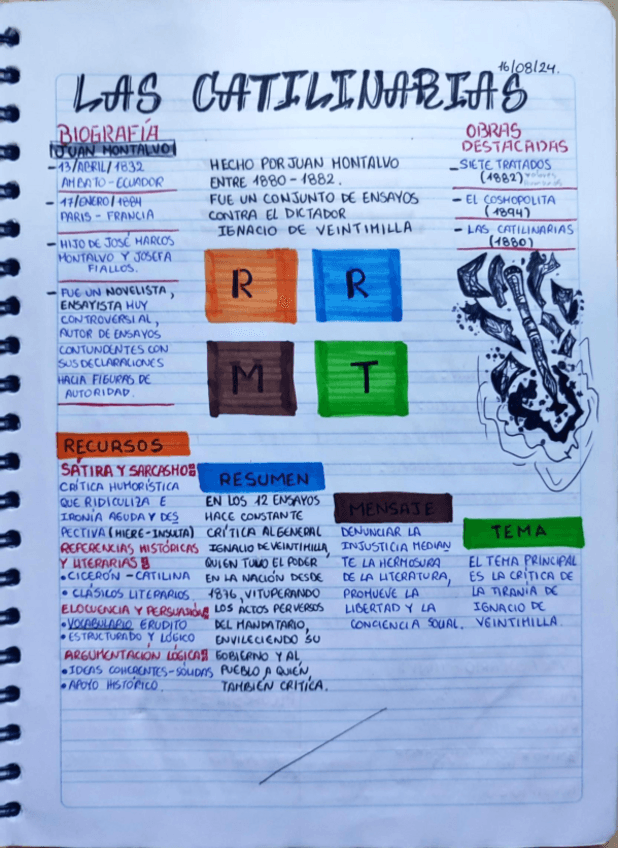 16/08/24.
LAS CATILINARIAS
BIOGRAFÍA
JUAN MONTALVO
- 13/ABRIL/1832
AMBATO - ECUADOR
- 17/ENERO/1884
PARIS - FRANCIA
- HIJO DE JOSÉ MARCOS
MONTALVO Y JOSEFA
FIALLOS.
- FUE UN NOVELISTA,
ENSAYISTA MUY
CONTROVERSIAL,
AUTOR DE ENSAYOS
CONTUNDENTES CON
SUS DECLARACIONES
HACIA FIGURAS DE
AUTORIDAD.
HECHO POR JUAN MONTALVO
ENTRE 1880 - 1882.
FUE UN CONJUNTO DE ENSAYOS
CONTRA EL DICTADOR
IGNACIO DE VEINTIMILLA
R R
M T
OBRAS
DESTACADAS
- SIETE TRATADOS
(1882)
- EL COSMOPOLITA
(1894)
- LAS CATILINARIAS
(1880)
RECURSOS
SÁTIRA Y SARCASMO:
CRÍTICA HUMORÍSTICA
QUE RIDICULIZA E
IRONÍA AGUDA Y DES
PECTIVA (HIERE-INSULTA)
REFERENCIAS HISTÓRICAS
Y LITERARIAS:
• CICERÓN - CATILINA
• CLÁSICOS LITERARIOS
ELOCUENCIA Y PERSUASIÓN:
• VOCABULARIO ERUDITO
• ESTRUCTURADO Y LÓGICO
ARGUMENTACIÓN LÓGICA:
• IDEAS COHERENTES-SÓLIDAS
• APOYO HISTÓRICO.
RESUMEN
EN LOS 12 ENSAYOS
HACE CONSTANTE
CRÍTICA AL GENERAL
IGNALIO DE VEINTIMILLA,
QUIEN TUVO EL PODER
EN LA NACIÓN DESDE
1876, VITUPERANDO
LOS ACTOS PERVERSOS
DEL MANDATARIO,
ENVILECIENDO SU
GOBIERNO Y AL
PUEBLO A QUIÉN
TAMBIÉN CRITICA.
MENSAJE
DENUNCIAR LA
INJUSTICIA MEDIAN
TE LA HERMOSURA
DE LA LITERATURA,
PROMUEVE LA
LIBERTAD Y LA
CONCIENCIA SOCIAL.
TEMA
EL TEMA PRINCIPAL
ES LA CRÍTICA DE
LA TIRANÍA DE
IGNACIO DE
VEINTIMILLA.